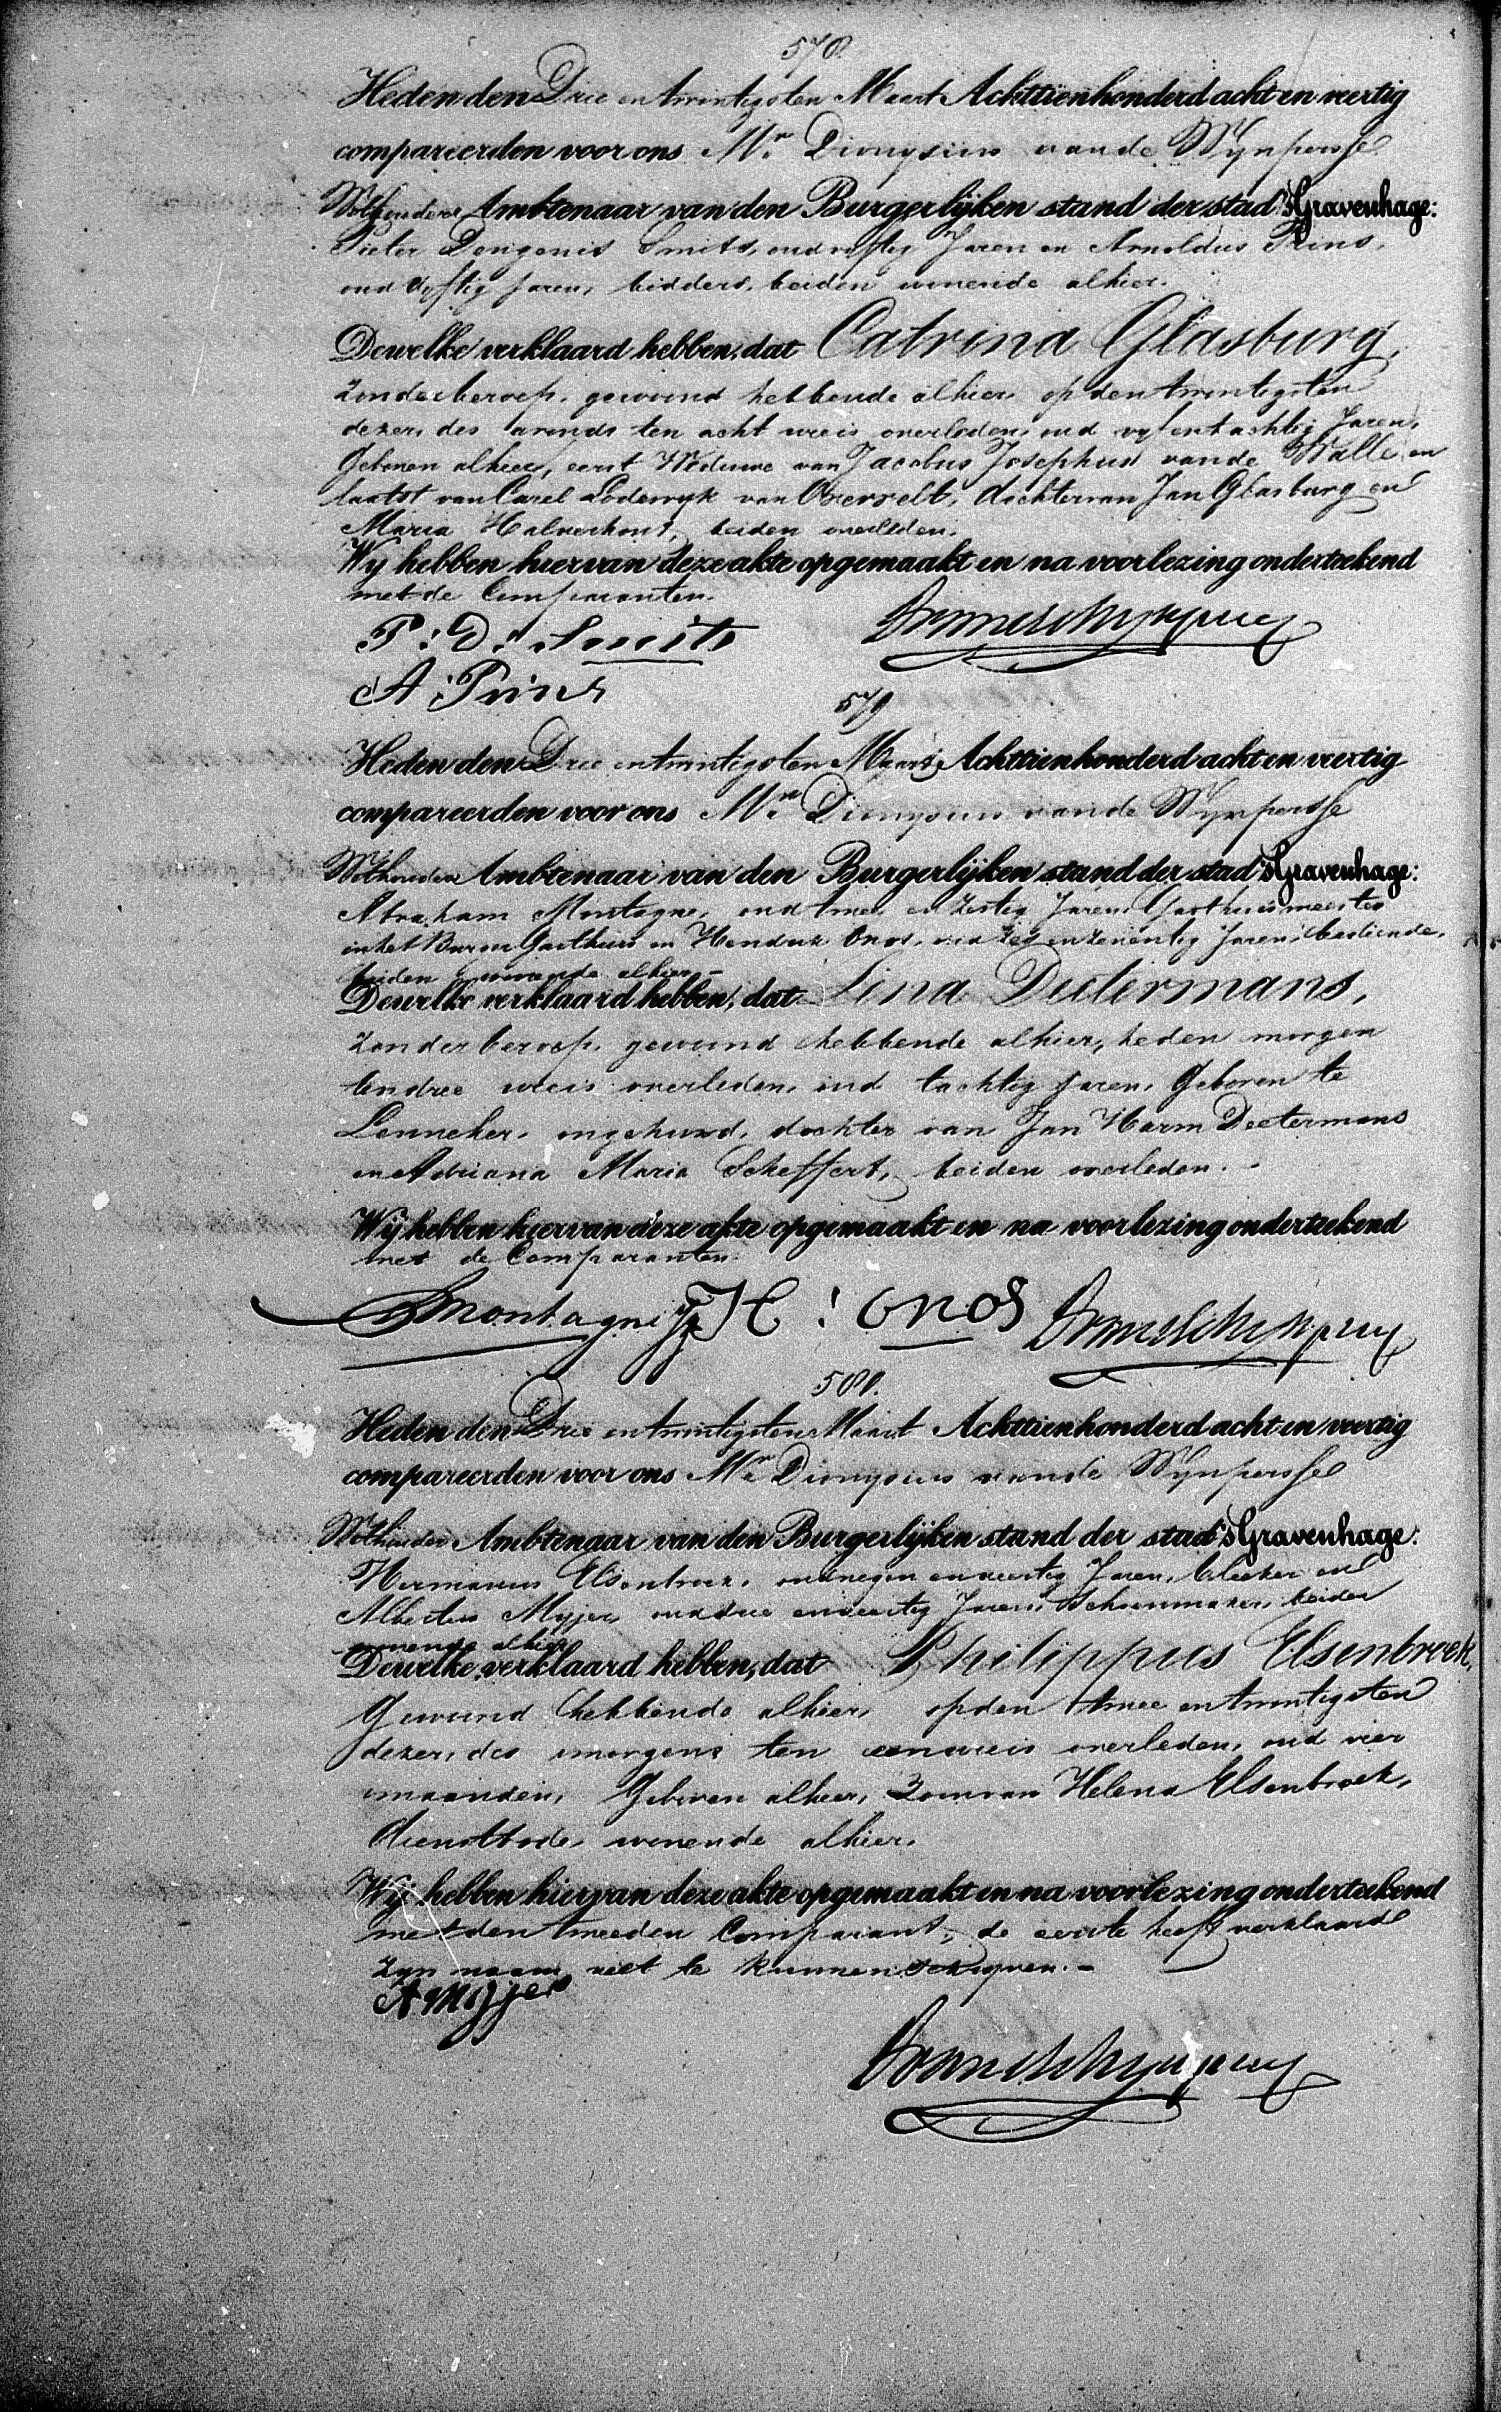 578.
Heden den Drie en twintigsten Maart Achttienhonderd acht en veertig
compareerden voor ons Mr. Dionysius van de Wynpersse
Wethouder Ambtenaar van den Burgerlijken stand der stad 'sGravenhage:
Pieter Dongenis Smits, oud vyftig Jaren en Arnoldus Prins,
oud vyftig Jaren, bidders, beiden wonende alhier.
Dewelke verklaard hebben, dat Catrina Glasburg,
zonder beroep, gewoond hebbende alhier, op den twintigsten
dezer, des avonds ten acht ure is overleden, oud vyf en tachtig Jaren,
Geboren alhier, eerst Weduwe van Jacobus Josephus van de Walle en
laatst van Carel Lodewyk van Overvelt, dochter van Jan Glasburg en
Maria Halverhout, beiden overleden.
Wy hebben hiervan deze akte opgemaakt en na voorlezing onderteekend
met de Comparanten.
P: D: Smits
A Prins
579
Heden den Drie en twintigsten Maart Achttienhonderd acht en veertig
compareerden voor ons Mr. Dionysius van de Wynpersse
Wethouder Ambtenaar van den Burgerlijken stand der stad 'sGravenhage:
Abraham Montagne, oud twee en zestig Jaren, Gasthuismeester
in het Burger Gasthuis en Hendrik Onos, oud zes en zeventig Jaren, bediende,
beiden wonende alhier.-
Dewelke verklaard hebben, dat Lina Deetermans,
zonder beroep, gewoond hebbende alhier, heden morgen
ten drie ure is overleden, oud tachtig Jaren, Geboren te
Lenneker, ongehuwd, dochter van Jan Harm Deetermans
en Adriana Maria Scheffert, beiden overleden.
Wij hebben hiervan deze akte opgemaakt en na voorlezing onderteekend
met de Comparanten.
Montagne H: Onos
580.
Heden den Drie en twintigsten Maart Achttienhonderd acht en veertig
compareerden voor ons Mr Dionysius van de Wynpersse
Wethouder Ambtenaar van den Burgerlijken stand der stad 'sGravenhage:
Hermanus Elsenbroek, oud negen en veertig Jaren, bleeker en
Albertus Myjer, oud drie en veertig Jaren, Schoenmaker, beiden
wonende alhier
Dewelke verklaard hebben, dat Philippus Elsenbroek,
Gewoond hebbende alhier, op den twee en twintigsten
dezer, des morgens ten een ure is overleden, oud vier
maanden, Geboren alhier, Zoon van Helena Elsenbroek,
dienstbode, wonende alhier.
Wij hebben hiervan deze akte opgemaakt en na voorlezing onderteekend
met den tweeden Comparant, de eerste heeft verklaard
zyn naam niet te kunnen schryven.-
A Myjer